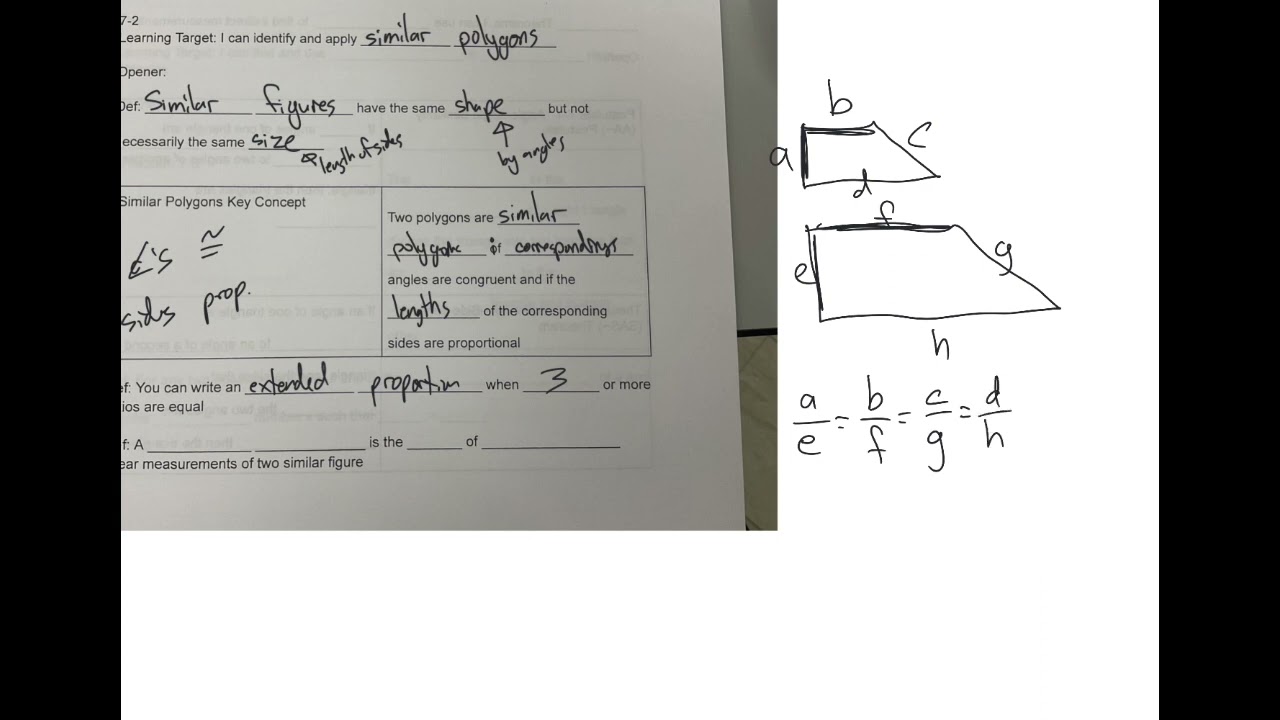 7-2
Learning Target: I can identify and apply similar polygons
Opener:
Def: Similar figures have the same shape but not
ecessarily the same size
length of sides
by angles
Similar Polygons Key Concept
∠'s ≅
sides prop.
Two polygons are similar
polygons if corresponding
angles are congruent and if the
lengths of the corresponding
sides are proportional
ef: You can write an extended proportion when 3 or more
ios are equal
f: A ____ ____ is the ____ of ____
ear measurements of two similar figure
b
a
c
d
f
e
g
h
a/e = b/f = c/g = d/h